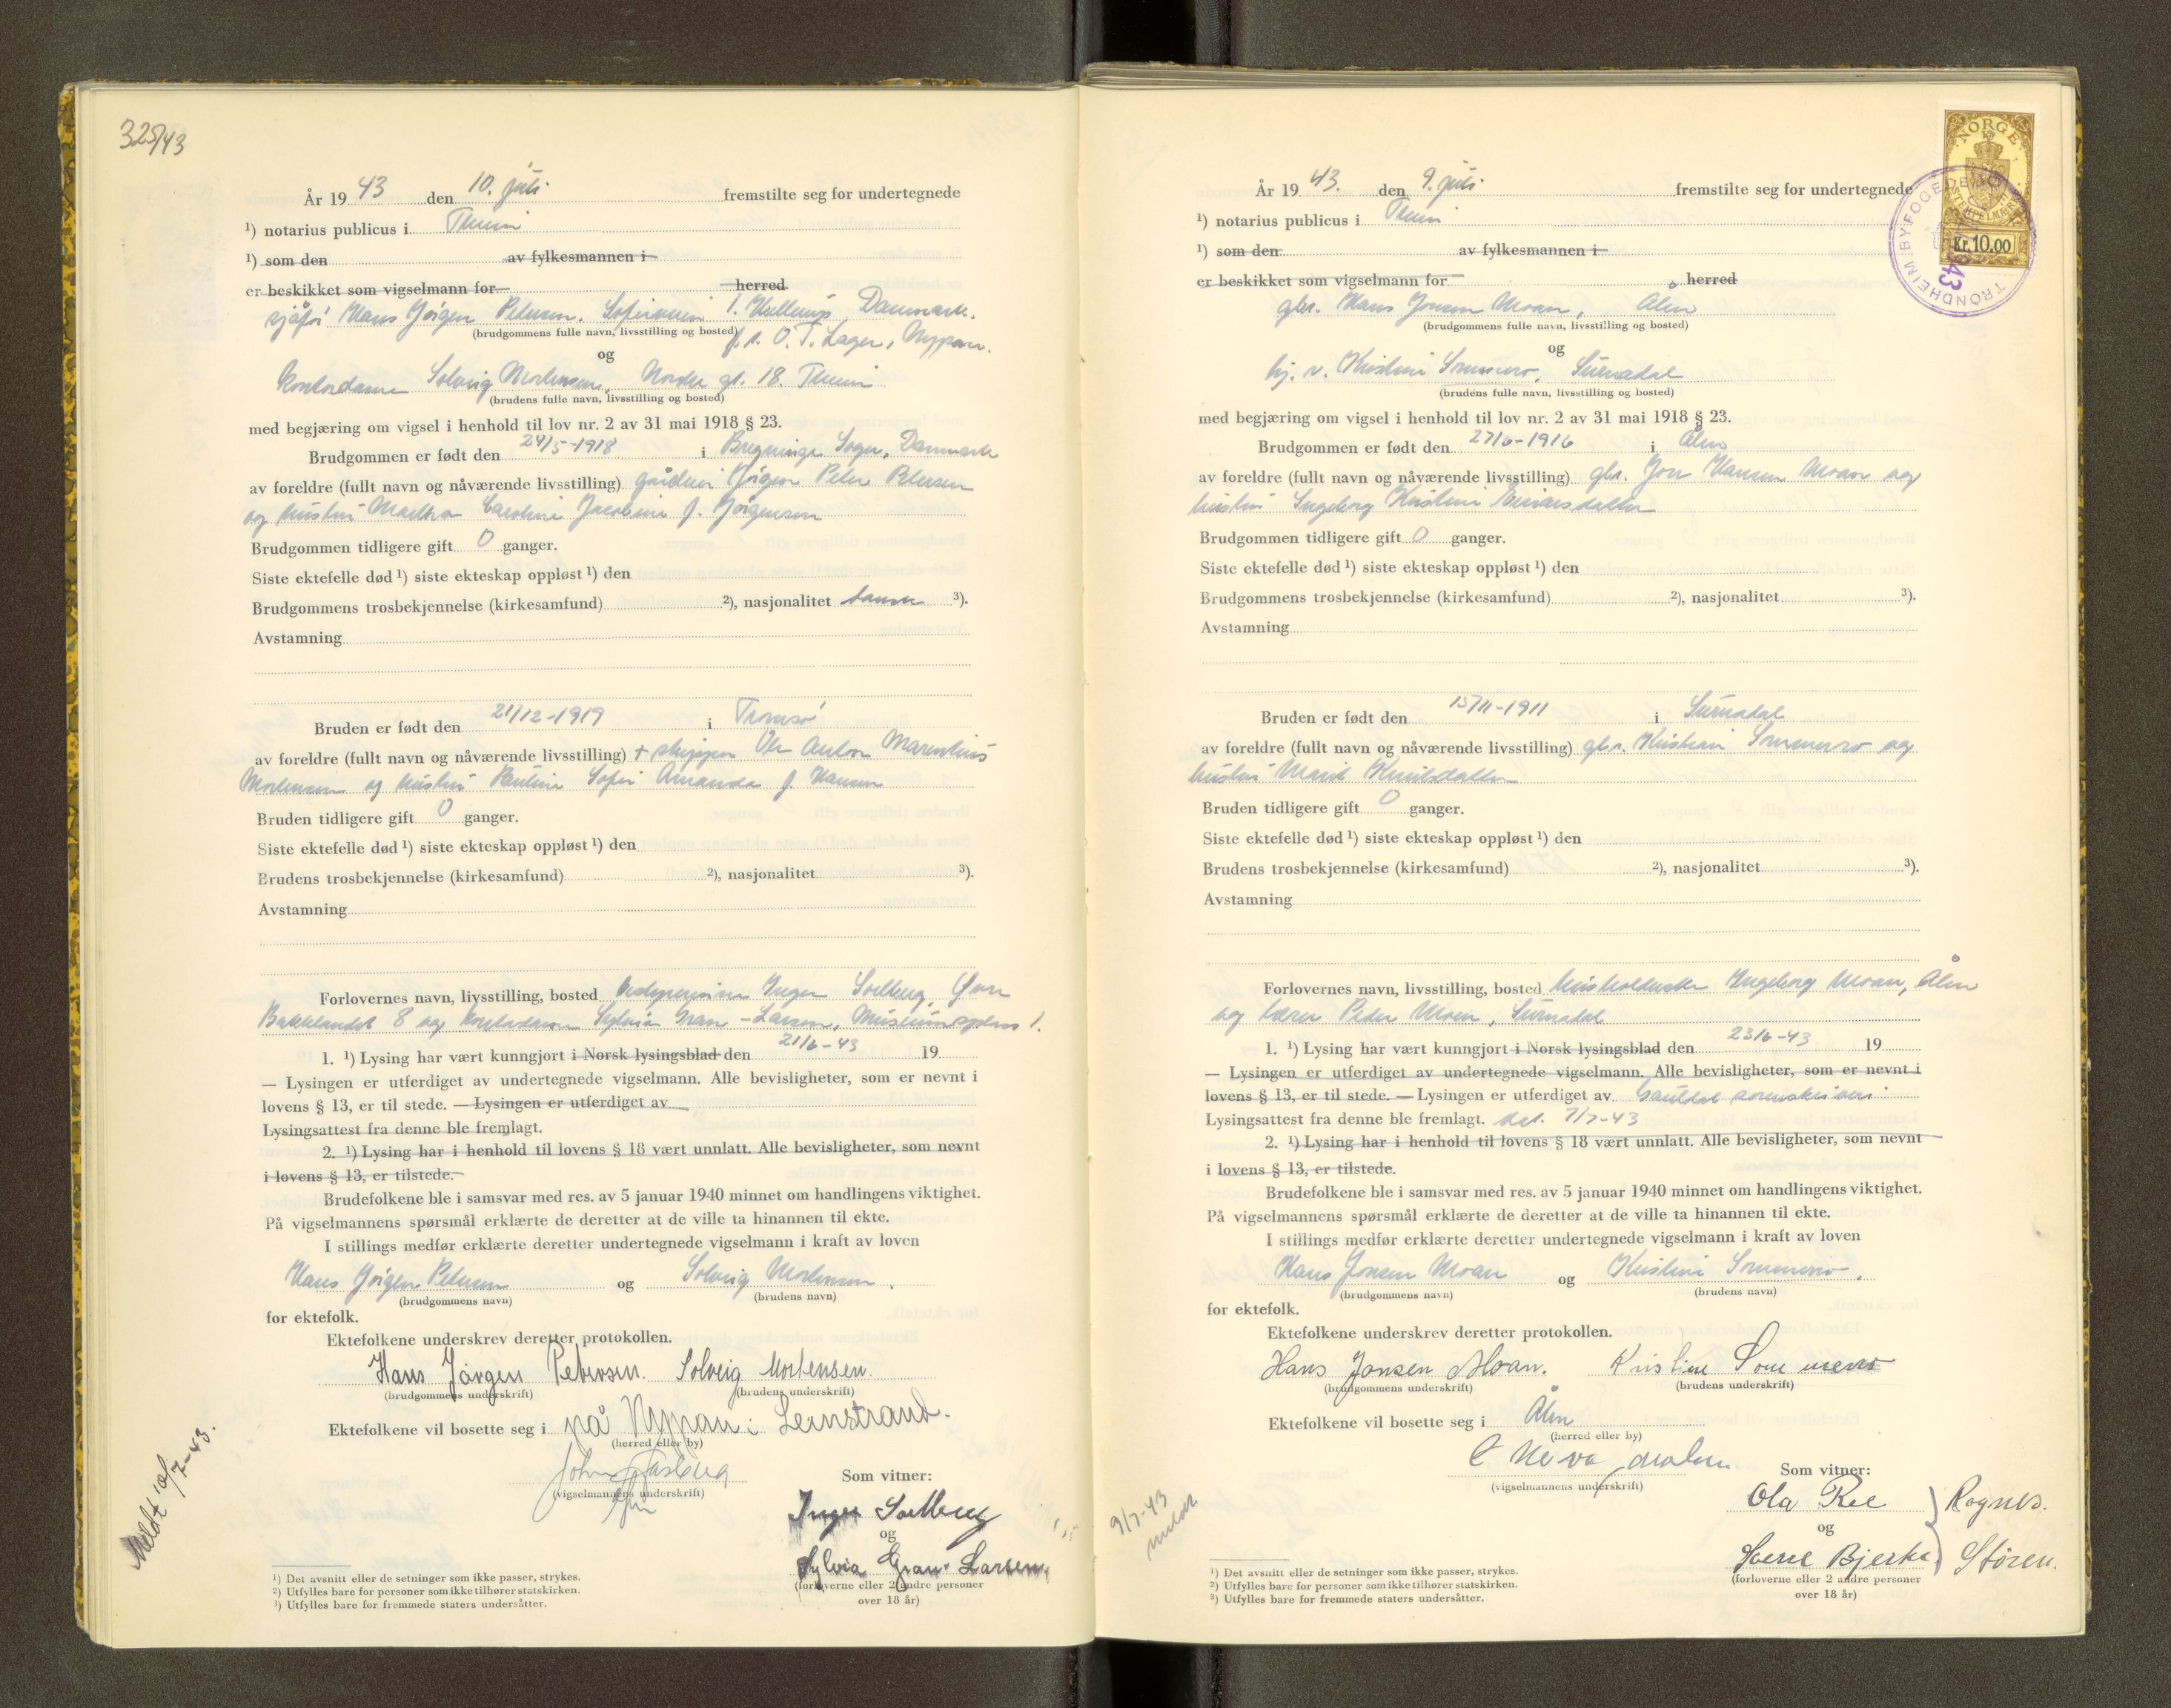 325/43
År 19 43 den 10. juli fremstilte seg for undertegnede
¹) notarius publicus i Theim
¹) som den av fylkesmannen i
er beskikket som vigselmann for herred
sjåfør Hans Jørgen Petersen. Danmark.
(brudgommens fulle navn, livsstilling og bosted) f.t. O.T. Lager, Nypan.
og
kontordame Solveig Mortensen, Nordre gt. 18. Theim
(brudens fulle navn, livsstilling og bosted)
med begjæring om vigsel i henhold til lov nr. 2 av 31 mai 1918 § 23.
Brudgommen er født den 24/5-1918 i Bregninge Sogn, Danmark
av foreldre (fullt navn og nåværende livsstilling) gårdeier Jørgen Peter Petersen
og hustru Martha Caroline Jacobine f. Jørgensen
Brudgommen tidligere gift 0 ganger.
Siste ektefelle død ¹) siste ekteskap oppløst ¹) den
Brudgommens trosbekjennelse (kirkesamfund) ²), nasjonalitet dansk ³).
Avstamning
Bruden er født den 21/12-1919 i Tromsø
av foreldre (fullt navn og nåværende livsstilling) + skipper Ole Anton Marentius
Mortensen og hustru Pauline Sofie Amanda f. Hansen
Bruden tidligere gift 0 ganger.
Siste ektefelle død ¹) siste ekteskap oppløst ¹) den
Brudens trosbekjennelse (kirkesamfund) ²), nasjonalitet ³).
Avstamning
Forlovernes navn, livsstilling, bosted Inger Solberg, Øvre
Bakklandet 8 og Sylvia Gran-Larsen, Museumsplass 1.
1. ¹) Lysing har vært kunngjort i Norsk lysingsblad den 21/6-43 19
— Lysingen er utferdiget av undertegnede vigselmann. Alle bevisligheter, som er nevnt i
lovens § 13, er til stede. — Lysingen er utferdiget av
Lysingsattest fra denne ble fremlagt.
2. ¹) Lysing har i henhold til lovens § 18 vært unnlatt. Alle bevisligheter, som nevnt
i lovens § 13, er tilstede.
Brudefolkene ble i samsvar med res. av 5 januar 1940 minnet om handlingens viktighet.
På vigselmannens spørsmål erklærte de deretter at de ville ta hinannen til ekte.
I stillings medfør erklærte deretter undertegnede vigselmann i kraft av loven
Hans Jørgen Petersen og Solveig Mortensen.
(brudgommens navn) (brudens navn)
for ektefolk.
Ektefolkene underskrev deretter protokollen.
Hans Jørgen Petersen. Solveig Mortensen.
(brudgommens underskrift) (brudens underskrift)
Ektefolkene vil bosette seg i på Nypan i Leinstrand.
(herred eller by)
Som vitner:
(vigselmannens underskrift)
Inger Solberg
og
Sylvia Gran-Larsen.
(forloverne eller 2 andre personer
over 18 år)
Meldt 10/7-43.
¹) Det avsnitt eller de setninger som ikke passer, strykes.
²) Utfylles bare for personer som ikke tilhører statskirken.
³) Utfylles bare for fremmede staters undersåtter.
NORGE
STEMPELMERKE
Kr. 10.00
TRONDHEIM BYFOGEDEMB
943
År 19 43. den 9. juli fremstilte seg for undertegnede
¹) notarius publicus i Theim
¹) som den av fylkesmannen i
er beskikket som vigselmann for herred
gbr. Hans Jonsen Moan, Ålen
(brudgommens fulle navn, livsstilling og bosted)
og
hj. v. Kristine Sommerro, Surnadal
(brudens fulle navn, livsstilling og bosted)
med begjæring om vigsel i henhold til lov nr. 2 av 31 mai 1918 § 23.
Brudgommen er født den 27/6-1916 i Ålen
av foreldre (fullt navn og nåværende livsstilling) gbr. Jon Hansen Moan og
hustru Ingeborg Kristine Einarsdatter
Brudgommen tidligere gift 0 ganger.
Siste ektefelle død ¹) siste ekteskap oppløst ¹) den
Brudgommens trosbekjennelse (kirkesamfund) ²), nasjonalitet ³).
Avstamning
Bruden er født den 15/11-1911 i Surnadal
av foreldre (fullt navn og nåværende livsstilling) gbr. Kristian Sommerro og
hustru Marit Knutsdatter
Bruden tidligere gift 0 ganger.
Siste ektefelle død ¹) siste ekteskap oppløst ¹) den
Brudens trosbekjennelse (kirkesamfund) ²), nasjonalitet ³).
Avstamning
Forlovernes navn, livsstilling, bosted husholderske Ingeborg Moan, Ålen
og lærer Peder Moen, Surnadal
1. ¹) Lysing har vært kunngjort i Norsk lysingsblad den 23/6-43 19
— Lysingen er utferdiget av undertegnede vigselmann. Alle bevisligheter, som er nevnt i
lovens § 13, er til stede. — Lysingen er utferdiget av Gauldal sorenskriveri
Lysingsattest fra denne ble fremlagt. dat. 7/7-43
2. ¹) Lysing har i henhold til lovens § 18 vært unnlatt. Alle bevisligheter, som nevnt
i lovens § 13, er tilstede.
Brudefolkene ble i samsvar med res. av 5 januar 1940 minnet om handlingens viktighet.
På vigselmannens spørsmål erklærte de deretter at de ville ta hinannen til ekte.
I stillings medfør erklærte deretter undertegnede vigselmann i kraft av loven
Hans Jonsen Moan og Kristine Sommerro.
(brudgommens navn) (brudens navn)
for ektefolk.
Ektefolkene underskrev deretter protokollen.
Hans Jonsen Moan. Kristine Sommerro
(brudgommens underskrift) (brudens underskrift)
Ektefolkene vil bosette seg i Ålen
(herred eller by)
Som vitner:
(vigselmannens underskrift)
Ola Ree } Rognes.
og
Sverre Bjerke } Støren.
(forloverne eller 2 andre personer
over 18 år)
9/7-43
meldt
¹) Det avsnitt eller de setninger som ikke passer, strykes.
²) Utfylles bare for personer som ikke tilhører statskirken.
³) Utfylles bare for fremmede staters undersåtter.